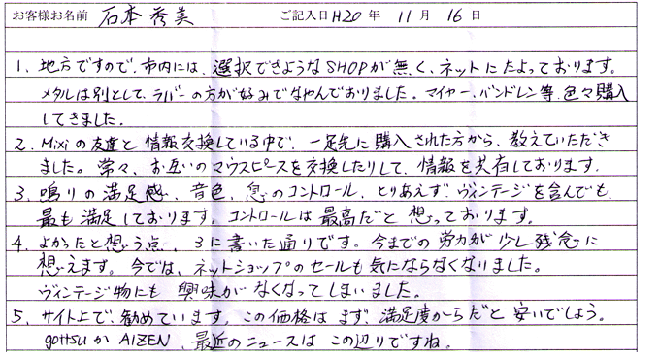 お客様お名前 石本秀美 ご記入日 H20年 11月 16日
1、地方ですので、市内には、選択できようなSHOPが無く、ネットにたよっております。
メタルは別として、ラバーの方が好みでなやんでおりました。マイヤー、バンドレン等、色々購入
してきました。
2、Mixiの友達と情報交換している中で、一足先に購入された方から、教えていただき
ました。常々、お互いのマウスピースを交換したりして、情報を共有しております。
3、鳴りの満足感、音色、息のコントロール、とりあえずヴィンテージを含んでも、
最も満足しております。コントロールは最高だと想っております。
4、よかったと想う点、3に書いた通りです。今までの労力が少し残念に
想えます。今では、ネットショップのセールも気にならなくなりました。
ヴィンテージ物にも興味がなくなってしまいました。
5、サイト上で、勧めています。この価格はまず、満足度からだと安いでしょう。
gottsuかAIZEN、最近のニュースはこの辺りですね。